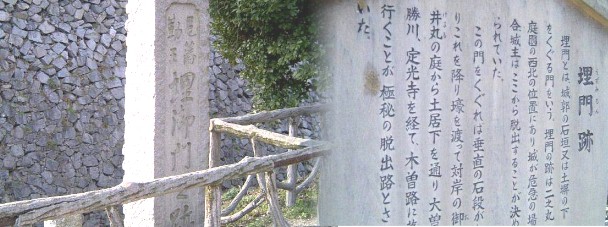 埋門跡
うずみもん
埋門とは、城郭の石垣又は土塀の下
をくぐる門をいう。埋門の跡は二之丸
庭園の西北の位置にあり城が危急の場
合城主はここから脱出することが決め
られていた。
この門をくぐれば垂直の石段が
りこれを降り壕を渡って対岸の御
井丸の庭から土居下を通り大曽
勝川、定光寺を経て、木曽路に
行くことが、極秘の脱出路とさ
いた。
埋御門之跡
勤王